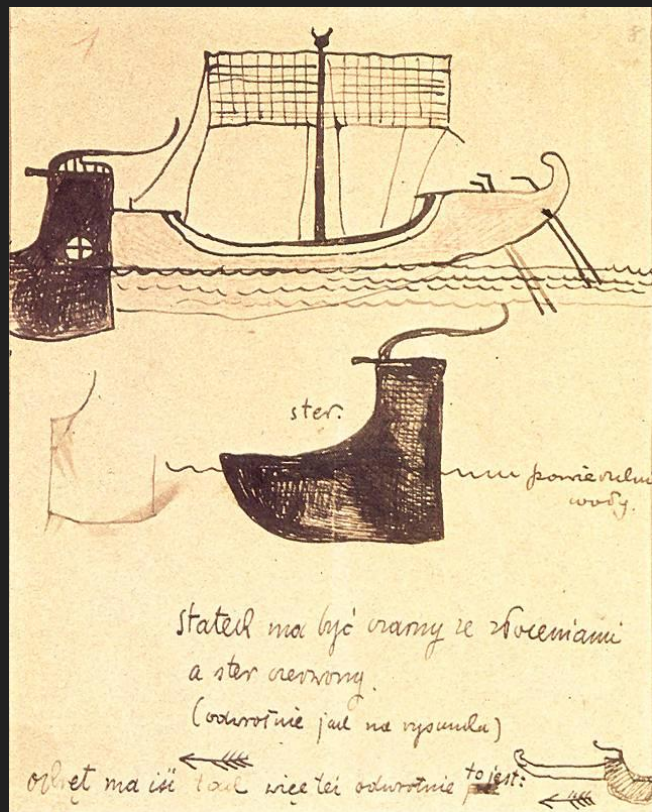 1
8
ster.
powierzchni
wody.
statek ma być czarny ze złoceniami
a ster czerwony.
(odwrotnie jak na rysunku)
okręt ma iść tak więc też odwrotnie to jest: